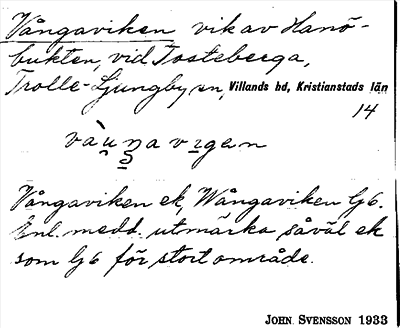 Vångaviken vik av Hanö-
bukten, vid Tosteberga,
Trolle-Ljungby sn, Villands hd, Kristianstads län
14
Vångaviken ek, Wångaviken G6.
Enl. medd. utmärka såväl ek
som G6 för stort område.
JOHN SVENSSON 1933